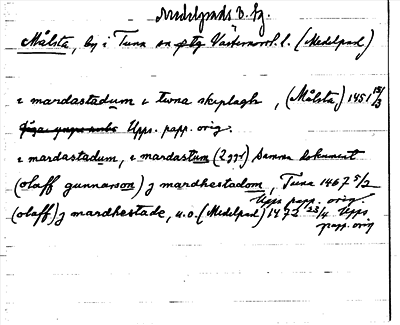 Medelpads D. sg.
Målsta, by i Tuna sn Västernorrl. l. (Medelpad)
i mardastadum i twna skeplagh, (Målsta) 1451 13/3
Upps. papp. orig.
i mardastadum, i mardastum (2 ggr) samma dokument
(olaff gunnarson) j mardhestadom, Tuna 1467 5/2
Upps papp. orig.
(olaff) j mardhestade, u.o. (Medelpad) 1472 23/4 Upps
papp. orig